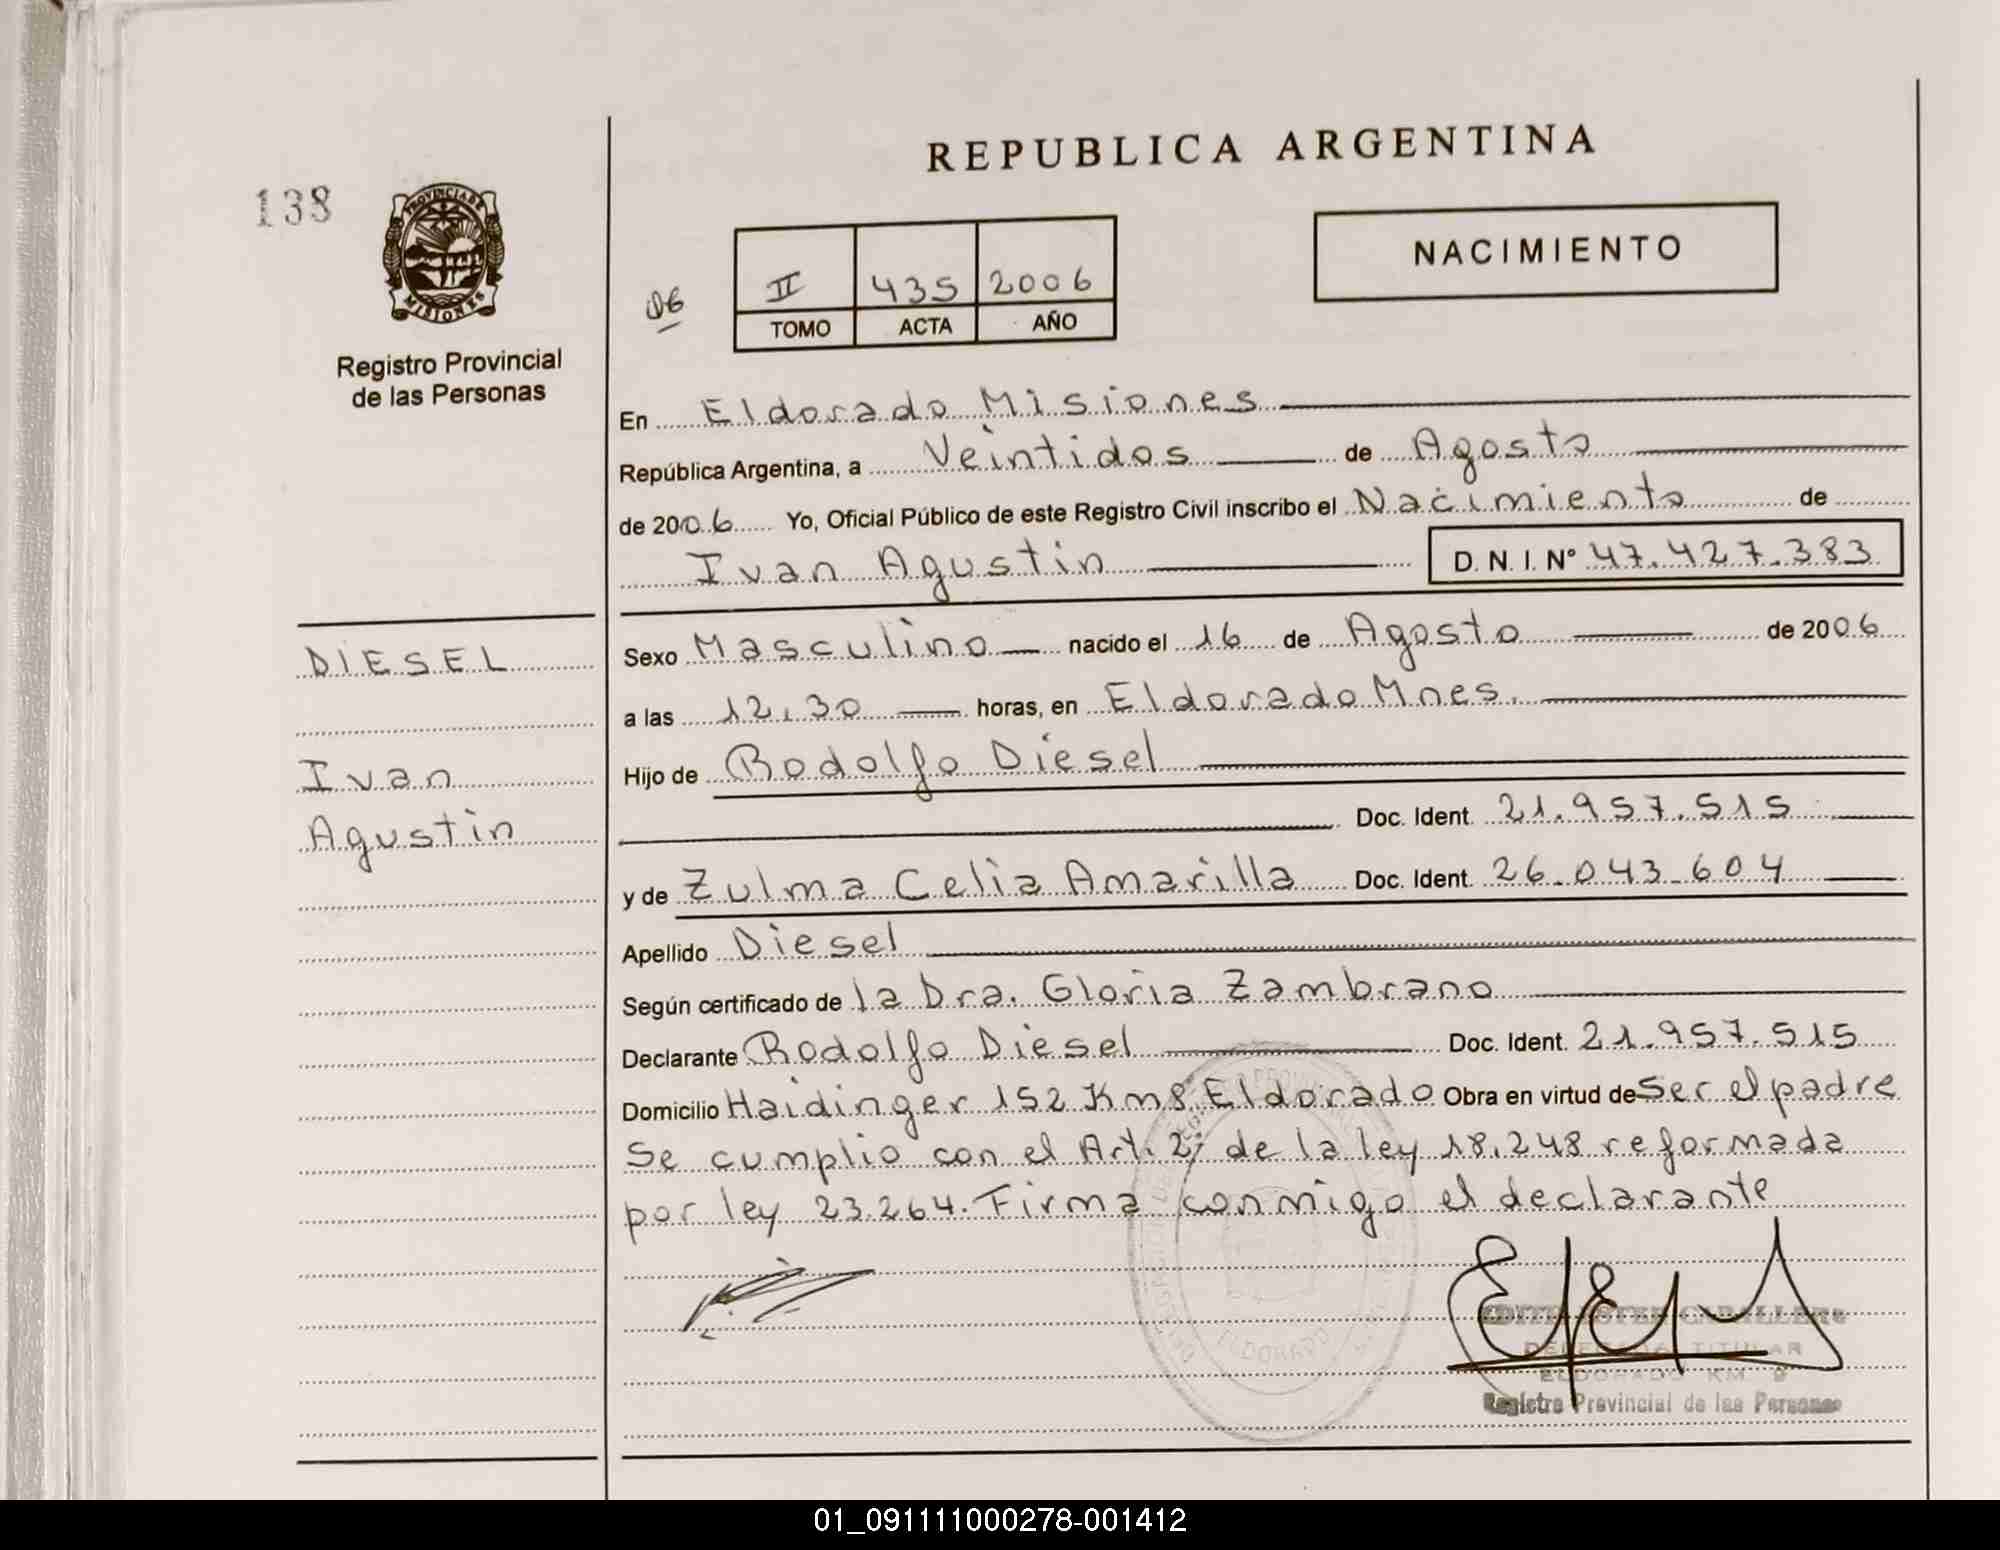 138
PROVINCIA DE
MISIONES
Registro Provincial
de las Personas
REPUBLICA ARGENTINA
NACIMIENTO
06
II 435 2006
TOMO ACTA AÑO
En Eldorado Misiones
República Argentina, a Veintidos de Agosto
de 2006 Yo, Oficial Público de este Registro Civil inscribo el Nacimiento de
Ivan Agustin D. N. I. Nº 47.427.383
DIESEL
Ivan
Agustin
Sexo Masculino nacido el 16 de Agosto de 2006
a las 12,30 horas, en Eldorado Mnes.
Hijo de Rodolfo Diesel
Doc. Ident. 21.957.515
y de Zulma Celia Amarilla Doc. Ident. 26.043.604
Apellido Diesel
Según certificado de la Dra. Gloria Zambrano
Declarante Rodolfo Diesel Doc. Ident. 21.957.515
Domicilio Haidinger 152 Km 8 Eldorado Obra en virtud de Ser el padre
Se cumplio con el Art. 2; de la ley 18.248 reformada
por ley 23.264. Firma conmigo el declarante
ELDORADO
EDITH ESTER CABALLERO
DELEGADA TITULAR
ELDORADO KM 9
Registro Provincial de las Personas
01_091111000278-001412